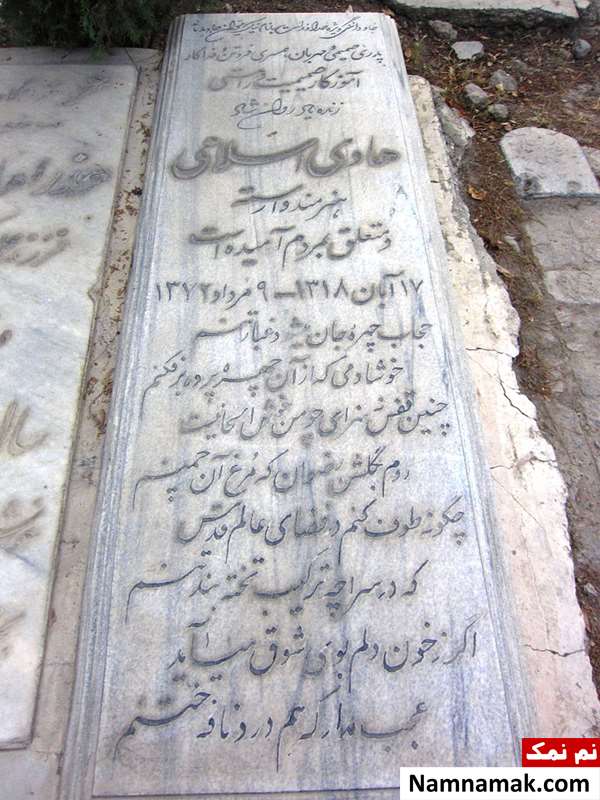 پدری صمیمی و مهربان، همسری فروتن و فداکار
آموزگار صمیمیت و راستی
زنده یاد روان شاد
هادی اسلامی
هنرمند وارسته
و متعلق بمردم آرمیده است
۱۷ آبان ۱۳۱۸ - ۹ مرداد ۱۳۷۲
حجاب چهره جان میشود غبار تنم
خوشا دمی که از آن چهره پرده برفکنم
چنین قفس نه سزای چو من خوش الحانیست
روم بگلشن رضوان که مرغ آن چمنم
چگونه طوف کنم در فضای عالم قدس
که در سراچه ترکیب تخته بند تنم
اگر ز خون دلم بوی شوق میآید
عجب مدار که هم درد نافه ختنم
نم نمک
Namnamak.com